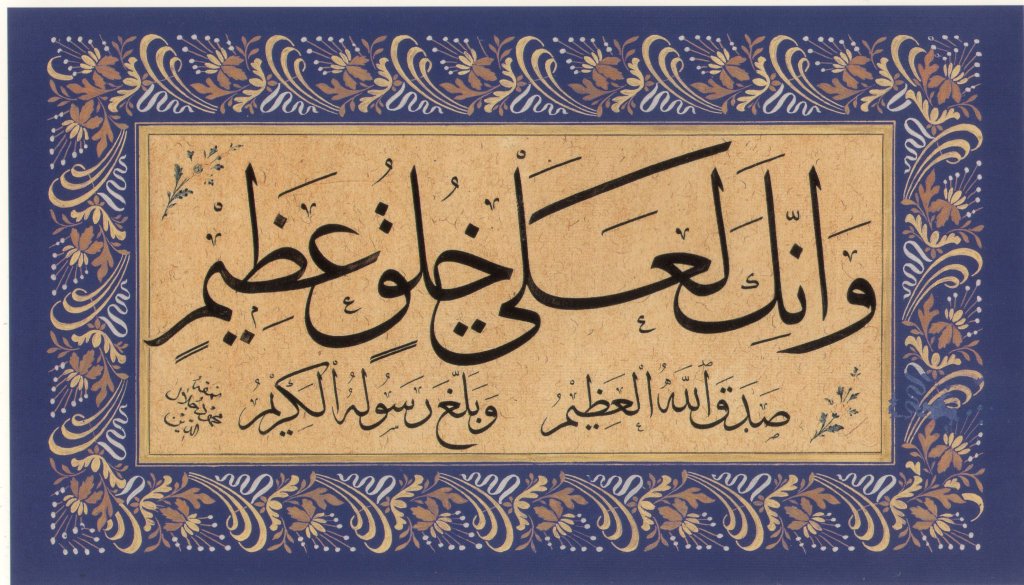 وَإِنَّكَ لَعَلَىٰ خُلُقٍ عَظِيمٍ
صَدَقَ ٱللَّهُ الْعَظِيمُ وَبَلَّغَ رَسُولُهُ الْكَرِيْمُ
نمقه
محمود جلال
الدين